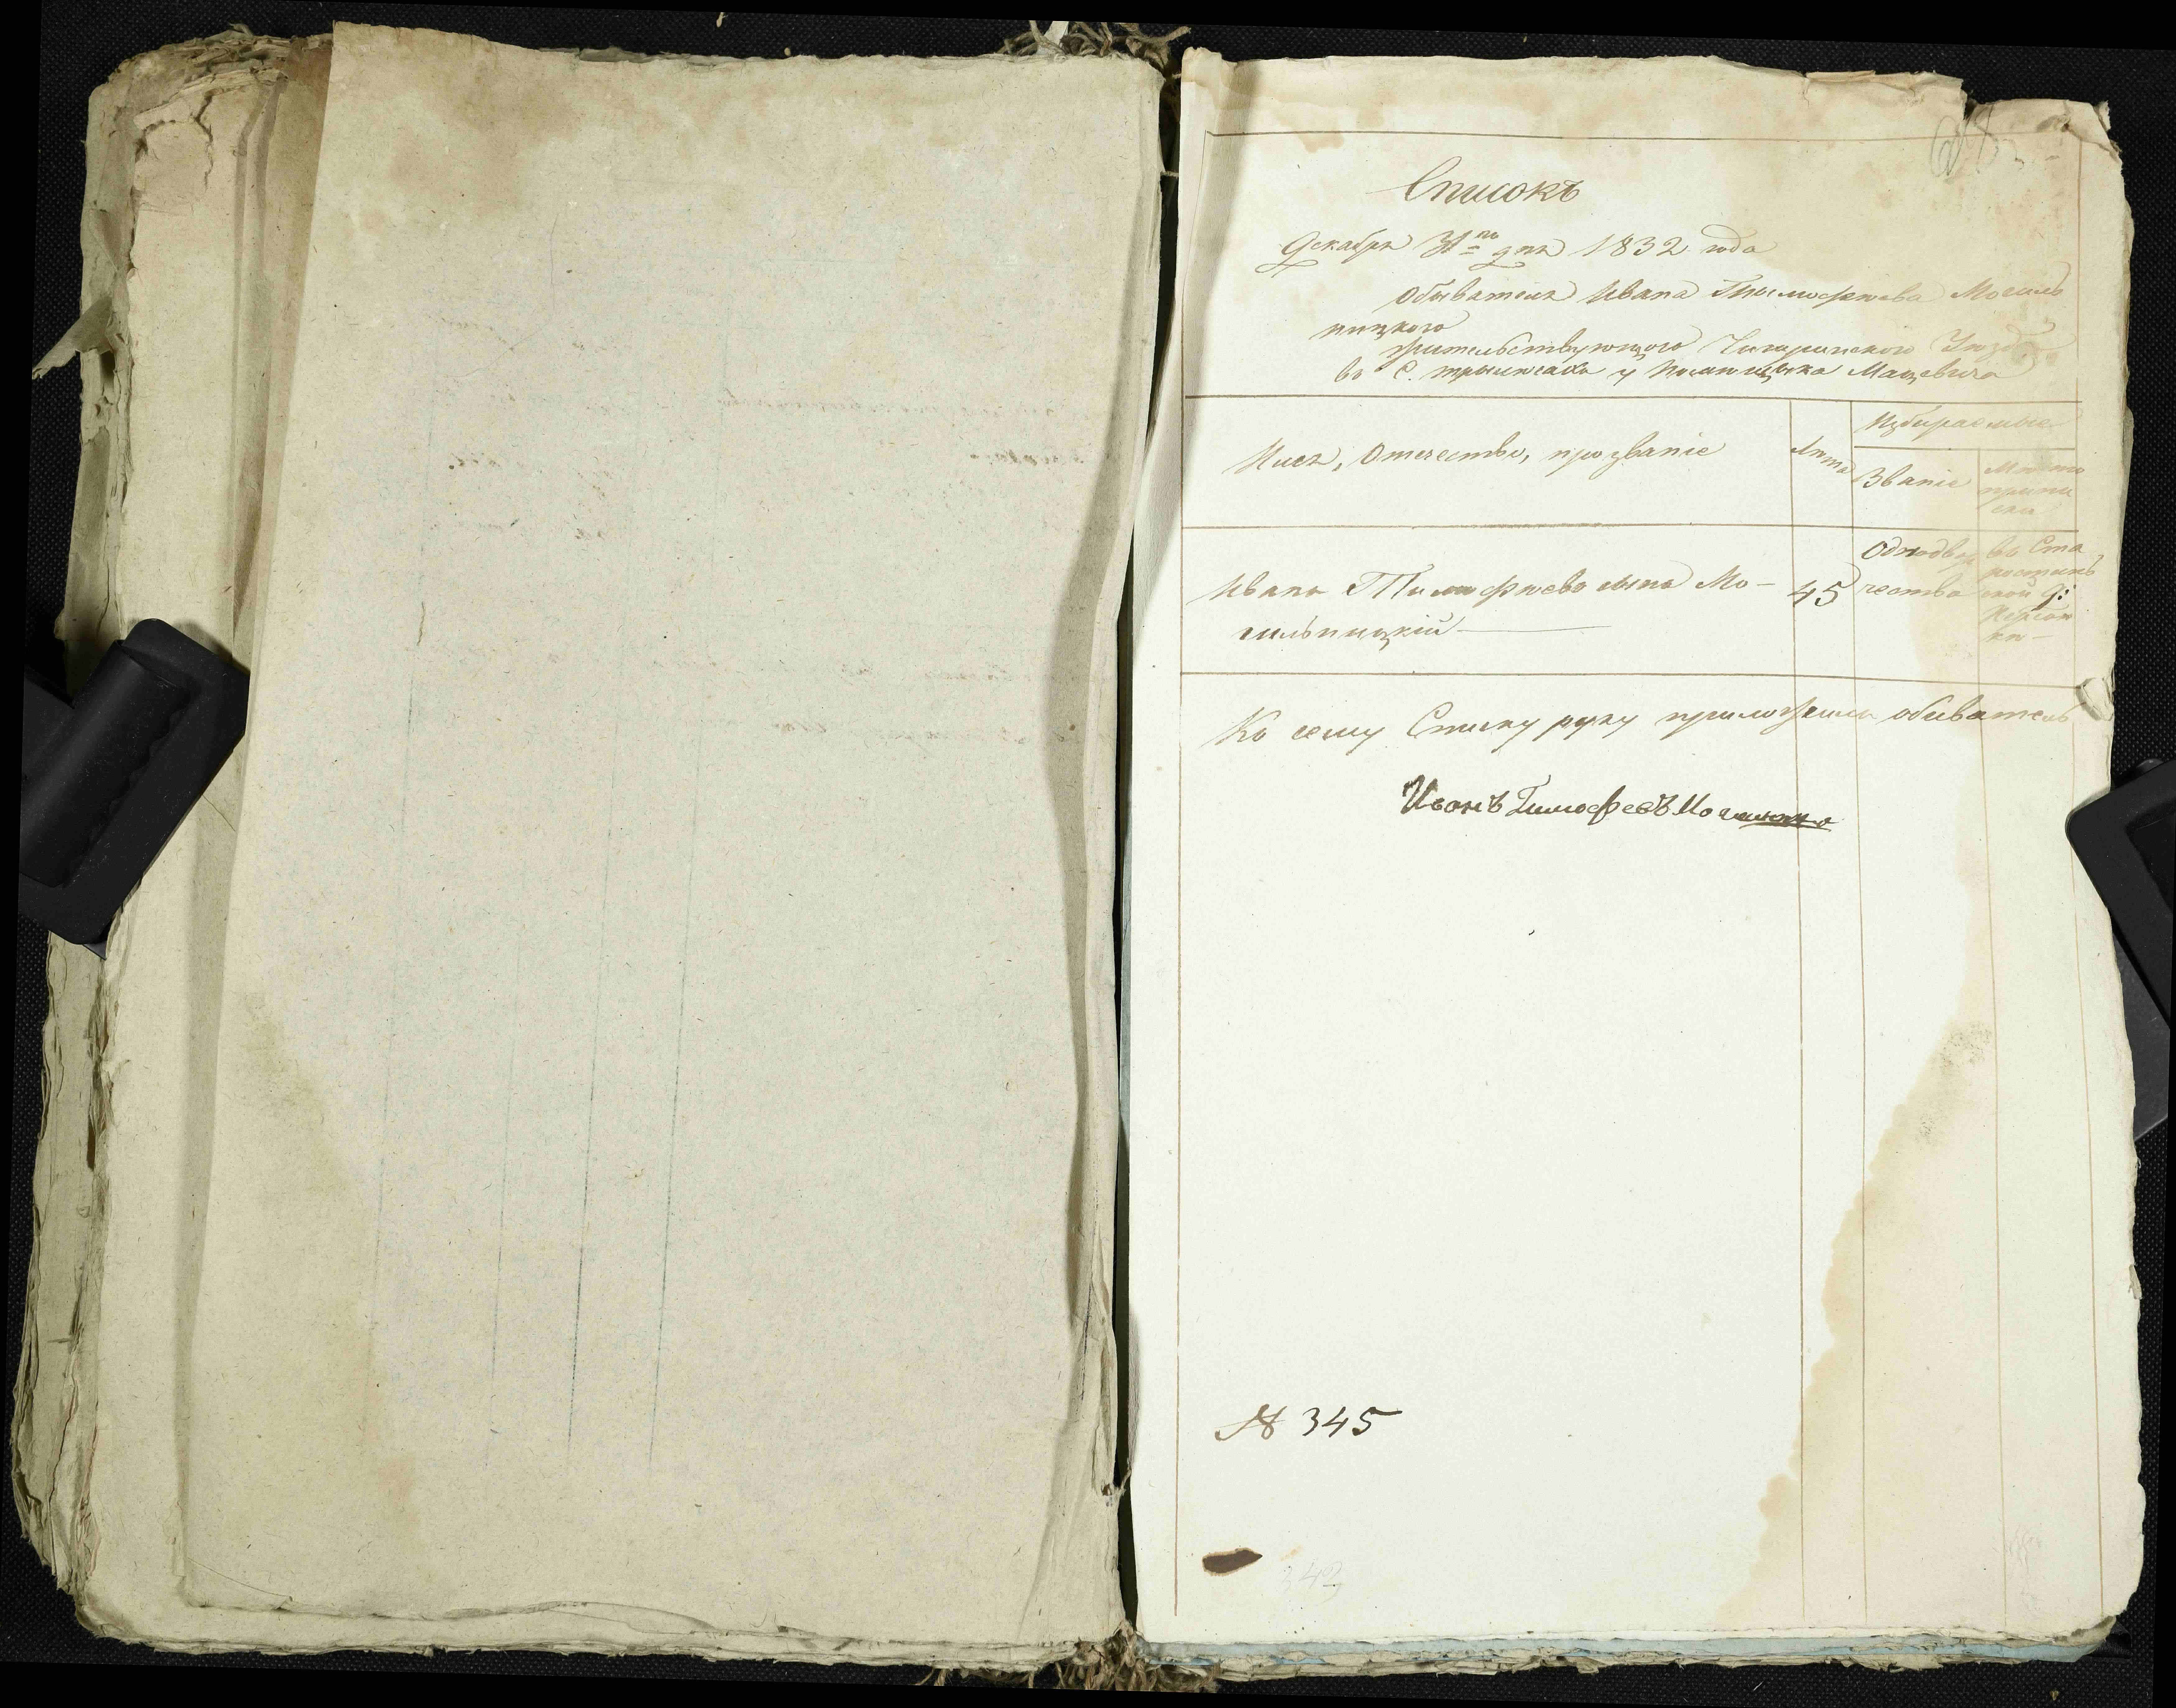 Списокъ
Декабря 31го дня 1832 года
Обывателя Ивана Тымофеева Могиль
ницкого
жительствующого Чигиринского Уезда
въ С. у Помещика Мацевича
Имя, Отчество, прозваніе
Лета
Избираемые
Званіе
Место
припи
ски
Иванъ Тимофеевъ сынъ Мо-
гильницкій
45
Однодвор
чество
въ Ста
ростин
ской
Къ сему Списку руку приложилъ обыватель
Иванъ Тимофеевъ
№ 345